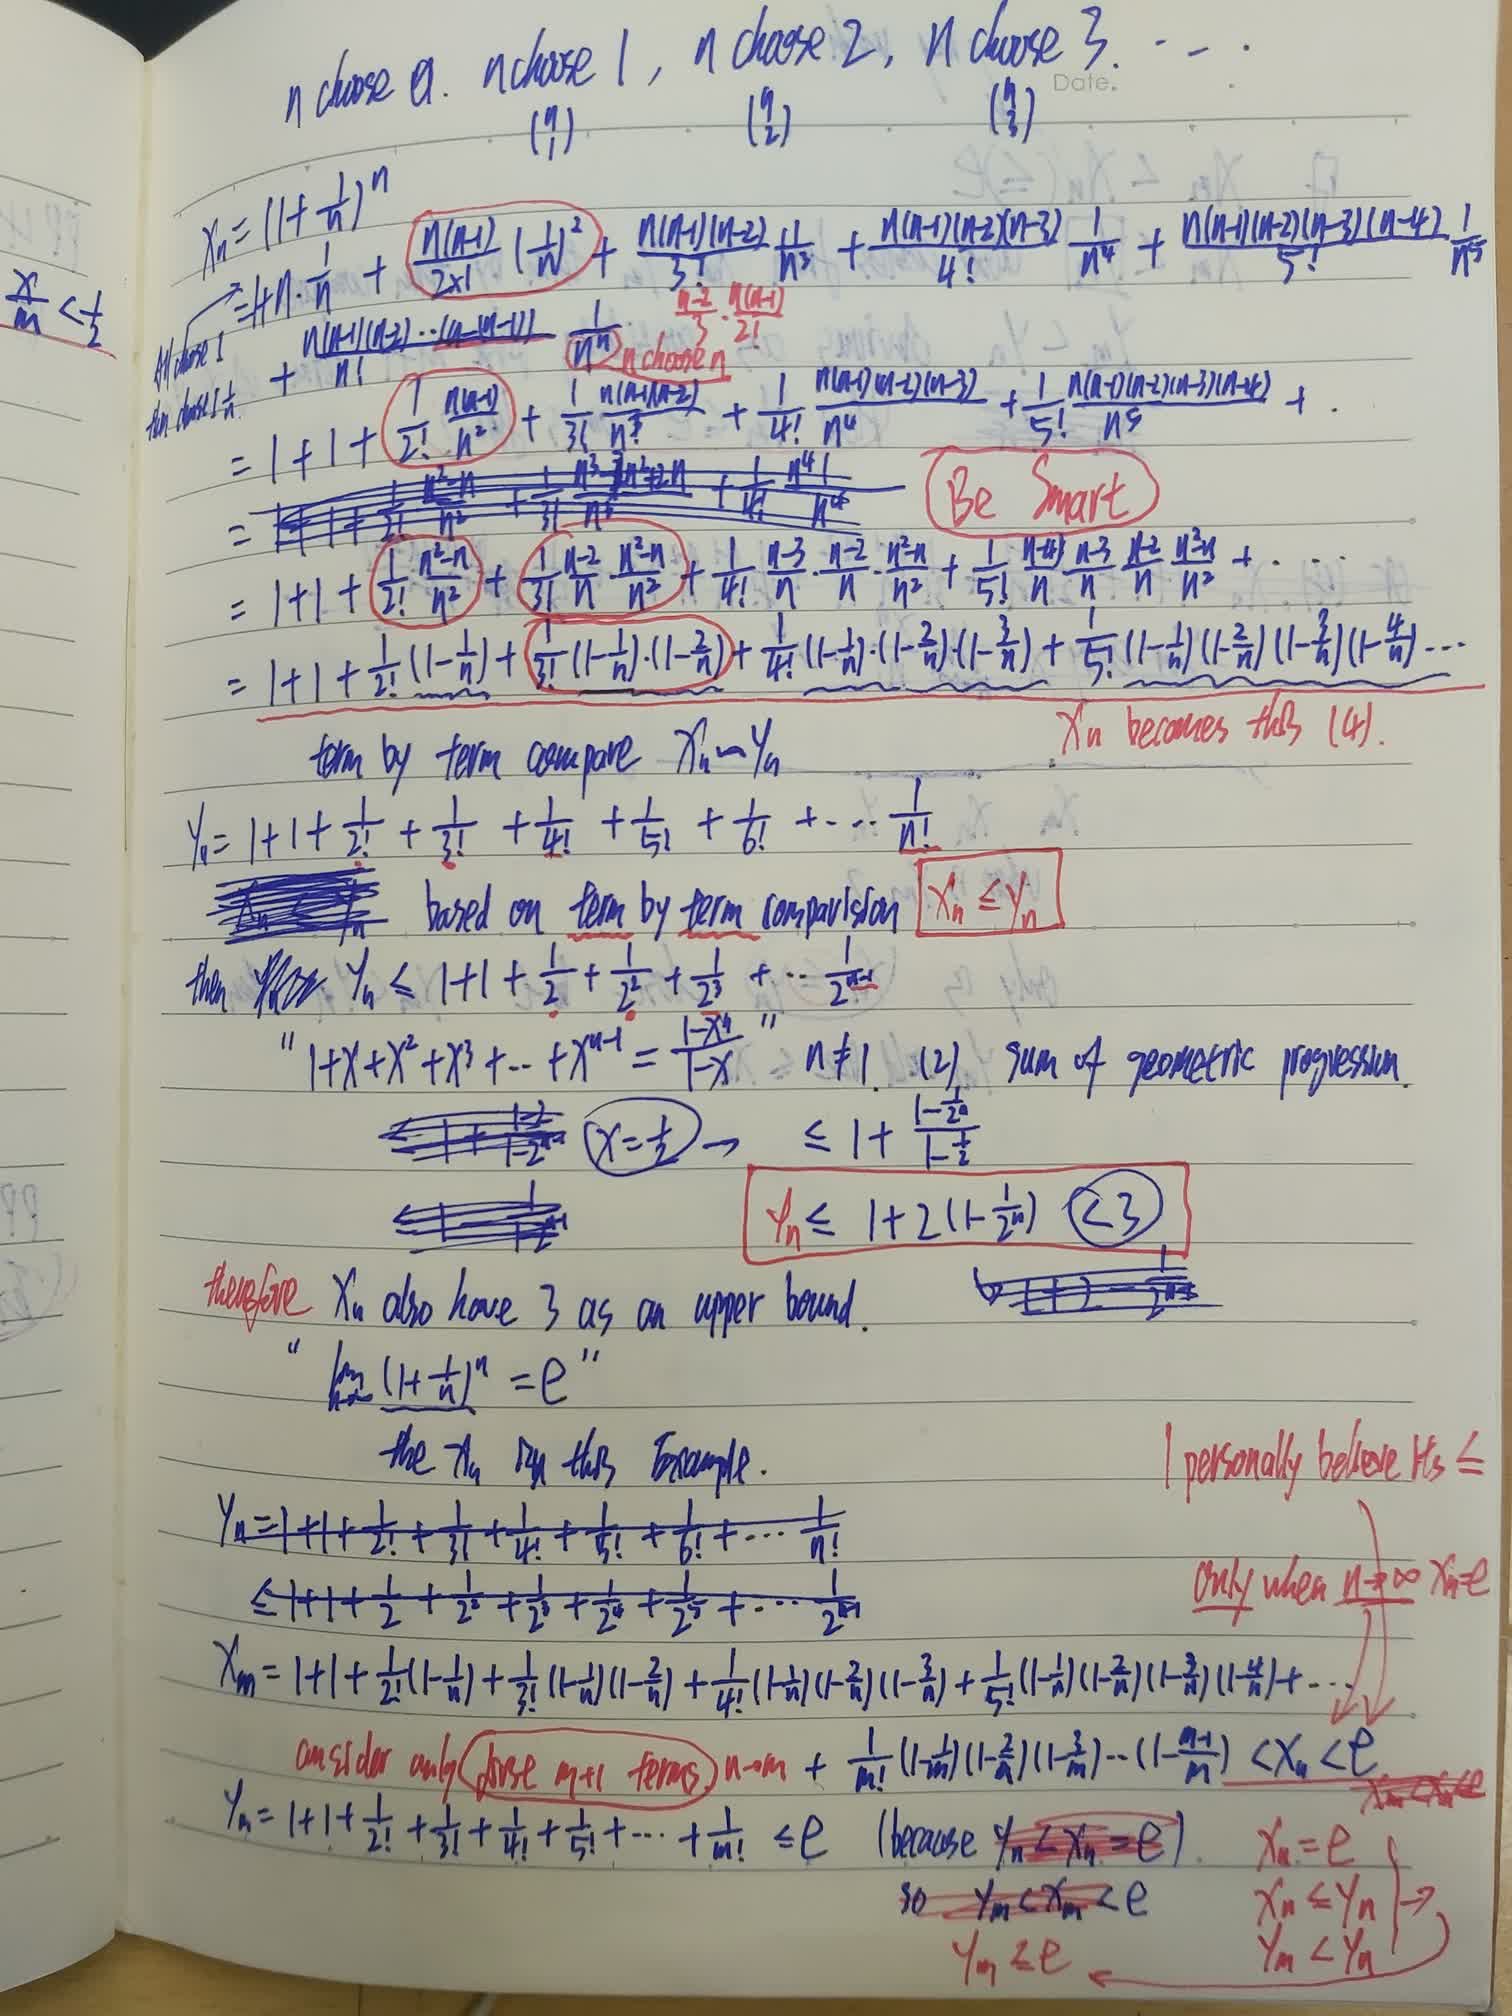 n choose 0. n choose 1, n choose 2, n choose 3. ...
Date.
(n 1) (n 2) (n 3)
Xn = (1+1/n)^n
= 1+n·1/n + n(n-1)/2×1 (1/n)^2 + n(n-1)(n-2)/3! 1/n^3 + n(n-1)(n-2)(n-3)/4! 1/n^4 + n(n-1)(n-2)(n-3)(n-4)/5! 1/n^5
x/m < 1/2
All choose 1
then choose 1 1/n
+ n(n-1)(n-2)···(n-(n-1))/n! 1/n^n n choose n
n-2/3 · n(n-1)/2!
= 1+1+ 1/2! n(n-1)/n^2 + 1/3! n(n-1)(n-2)/n^3 + 1/4! n(n-1)(n-2)(n-3)/n^4 + 1/5! n(n-1)(n-2)(n-3)(n-4)/n^5 + .
Be Smart
= 1+1+ 1/2! n²-n/n² + 1/3! n-2/n n²-n/n² + 1/4! n-3/n · n-2/n · n²-n/n² + 1/5! n-4/n · n-3/n n-2/n n²-n/n² + ···
= 1+1+ 1/2! (1-1/n) + 1/3! (1-1/n)·(1-2/n) + 1/4! (1-1/n)·(1-2/n)·(1-3/n) + 1/5! (1-1/n)(1-2/n)(1-3/n)(1-4/n) ...
Xn becomes this (4).
term by term compare Xn ~ Yn
Yn = 1+1+ 1/2! + 1/3! + 1/4! + 1/5! + 1/6! + ··· 1/n!
based on term by term comparision Xn ≤ Yn
then Yn ≤ 1+1+ 1/2 + 1/2² + 1/2³ + ·· 1/2^(n-1)
" 1+x+x²+x³+··+x^(n-1) = 1-x^n/1-x " n≠1. (2) sum of geometric progression.
x=1/2 → ≤ 1+ (1-1/2^n)/(1-1/2)
Yn ≤ 1+2(1-1/2^n) <3
therefore Xn also have 3 as an upper bound.
" lim n→∞ (1+1/n)^n = e "
the Xn in this Example.
I personally believe it's ≤
Yn = 1+1+ 1/2! + 1/3! + 1/4! + 1/5! + 1/6! + ··· 1/n!
only when n→∞ Xn=e
≤ 1+1+ 1/2 + 1/2² + 1/2³ + 1/2⁴ + 1/2⁵ + ··· 1/2^(n-1)
Xm = 1+1+ 1/2!(1-1/n) + 1/3!(1-1/n)(1-2/n) + 1/4!(1-1/n)(1-2/n)(1-3/n) + 1/5!(1-1/n)(1-2/n)(1-3/n)(1-4/n) + ...
consider only those m+1 terms n→m + 1/m!(1-1/m)(1-2/m)(1-3/m)··(1-m-1/m) < Xn < e
Ym = 1+1+ 1/2! + 1/3! + 1/4! + 1/5! + ··· + 1/m! ≤ e (because Yn < Xn = e). Xn = e
so Ym < Xm < e Xn ≤ Yn
Ym ≤ e Ym < Yn